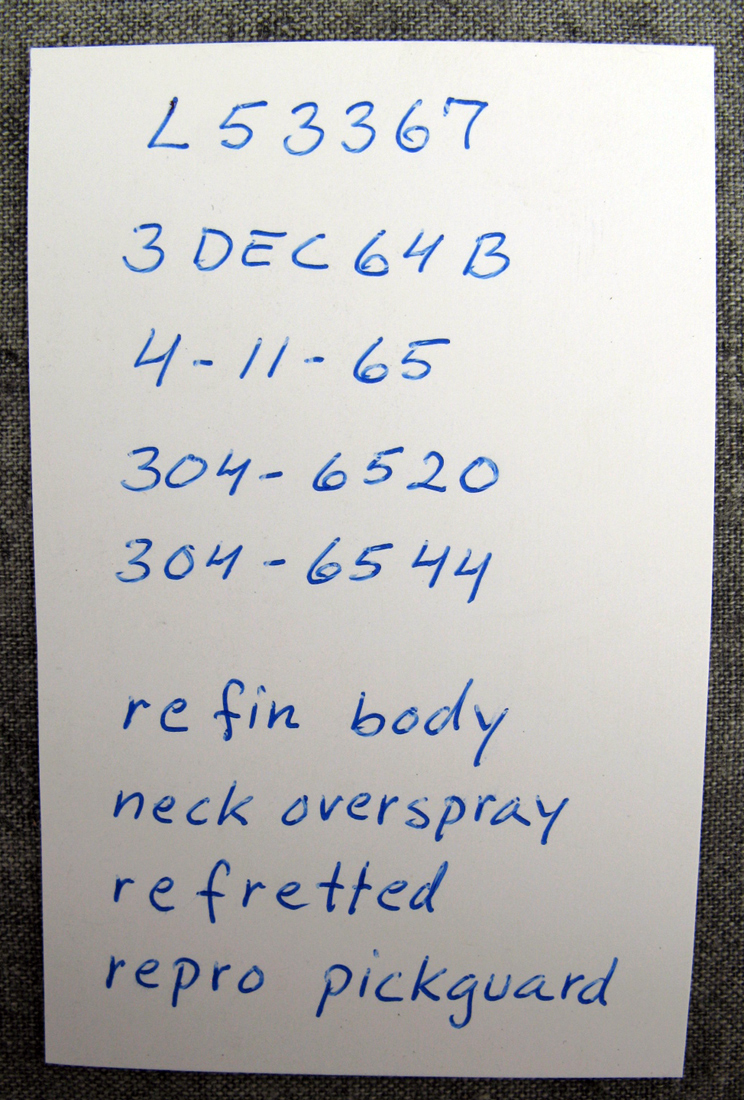 L53367
3 DEC 64 B
4-11-65
304-6520
304-6544
refin body
neck overspray
refretted
repro pickguard